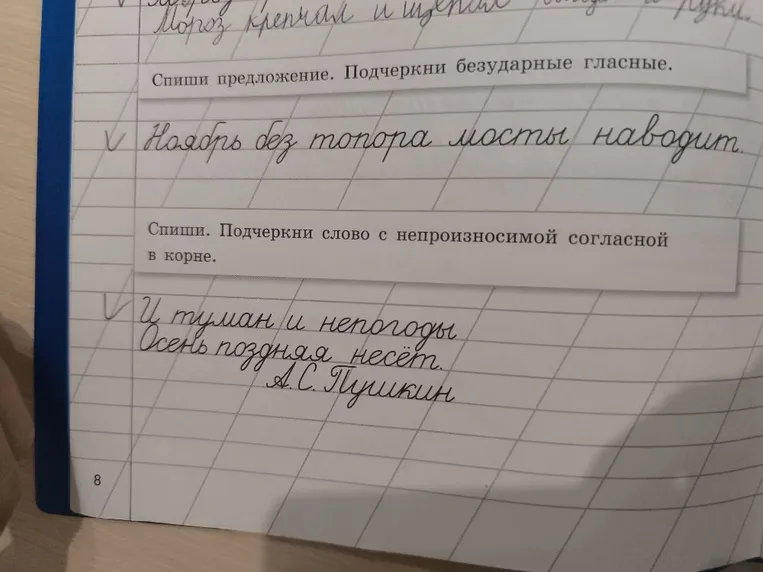 Мороз крепчал и щипал руки.
Спиши предложение. Подчеркни безударные гласные.
Ноябрь без топора мосты наводит.
Спиши. Подчеркни слово с непроизносимой согласной
в корне.
И туман и непогоды
Осень поздняя несёт.
А.С. Пушкин
8